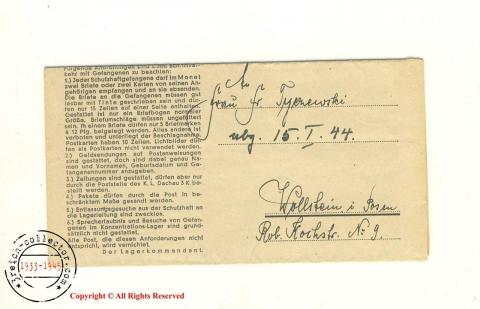 Folgende Anordnungen sind beim Schriftver-
kehr mit Gefangenen zu beachten:
1.) Jeder Schutzhaftgefangene darf im Monat
zwei Briefe oder zwei Karten von seinen An-
gehörigen empfangen und an sie absenden.
Die Briefe an die Gefangenen müssen gut
lesbar mit Tinte geschrieben sein und dür-
fen nur 15 Zeilen auf einer Seite enthalten.
Gestattet ist nur ein Briefbogen normaler
Größe. Briefumschläge müssen ungefüttert
sein. In einem Briefe dürfen nur 5 Briefmarken
à 12 Pfg. beigelegt werden. Alles andere ist
verboten und unterliegt der Beschlagnahme.
Postkarten haben 10 Zeilen. Lichtbilder dür-
fen als Postkarten nicht verwendet werden.
2.) Geldsendungen auf Postanweisungen
sind gestattet, doch sind dabei genau Na-
men und Vornamen, Geburtsdatum und Ge-
fangenennummer anzugeben.
3.) Zeitungen sind gestattet, dürfen aber nur
durch die Poststelle des K. L. Dachau 3 K be-
stellt werden.
4.) Pakete dürfen durch die Post in be-
schränktem Maße gesandt werden.
5.) Entlassungsgesuche aus der Schutzhaft an
die Lagerleitung sind zwecklos.
6.) Sprecherlaubnis und Besuche von Gefan-
genen im Konzentrations-Lager sind grund-
sätzlich nicht gestattet.
Alle Post, die diesen Anforderungen nicht
entspricht, wird vernichtet.
Der Lagerkommandant.
An
Frau Fr.
15. I. 44.
Wollstein i. Posen
Rob. Kochstr. № 9.
3reich-collector.com
1933-1945
Copyright © All Rights Reserved